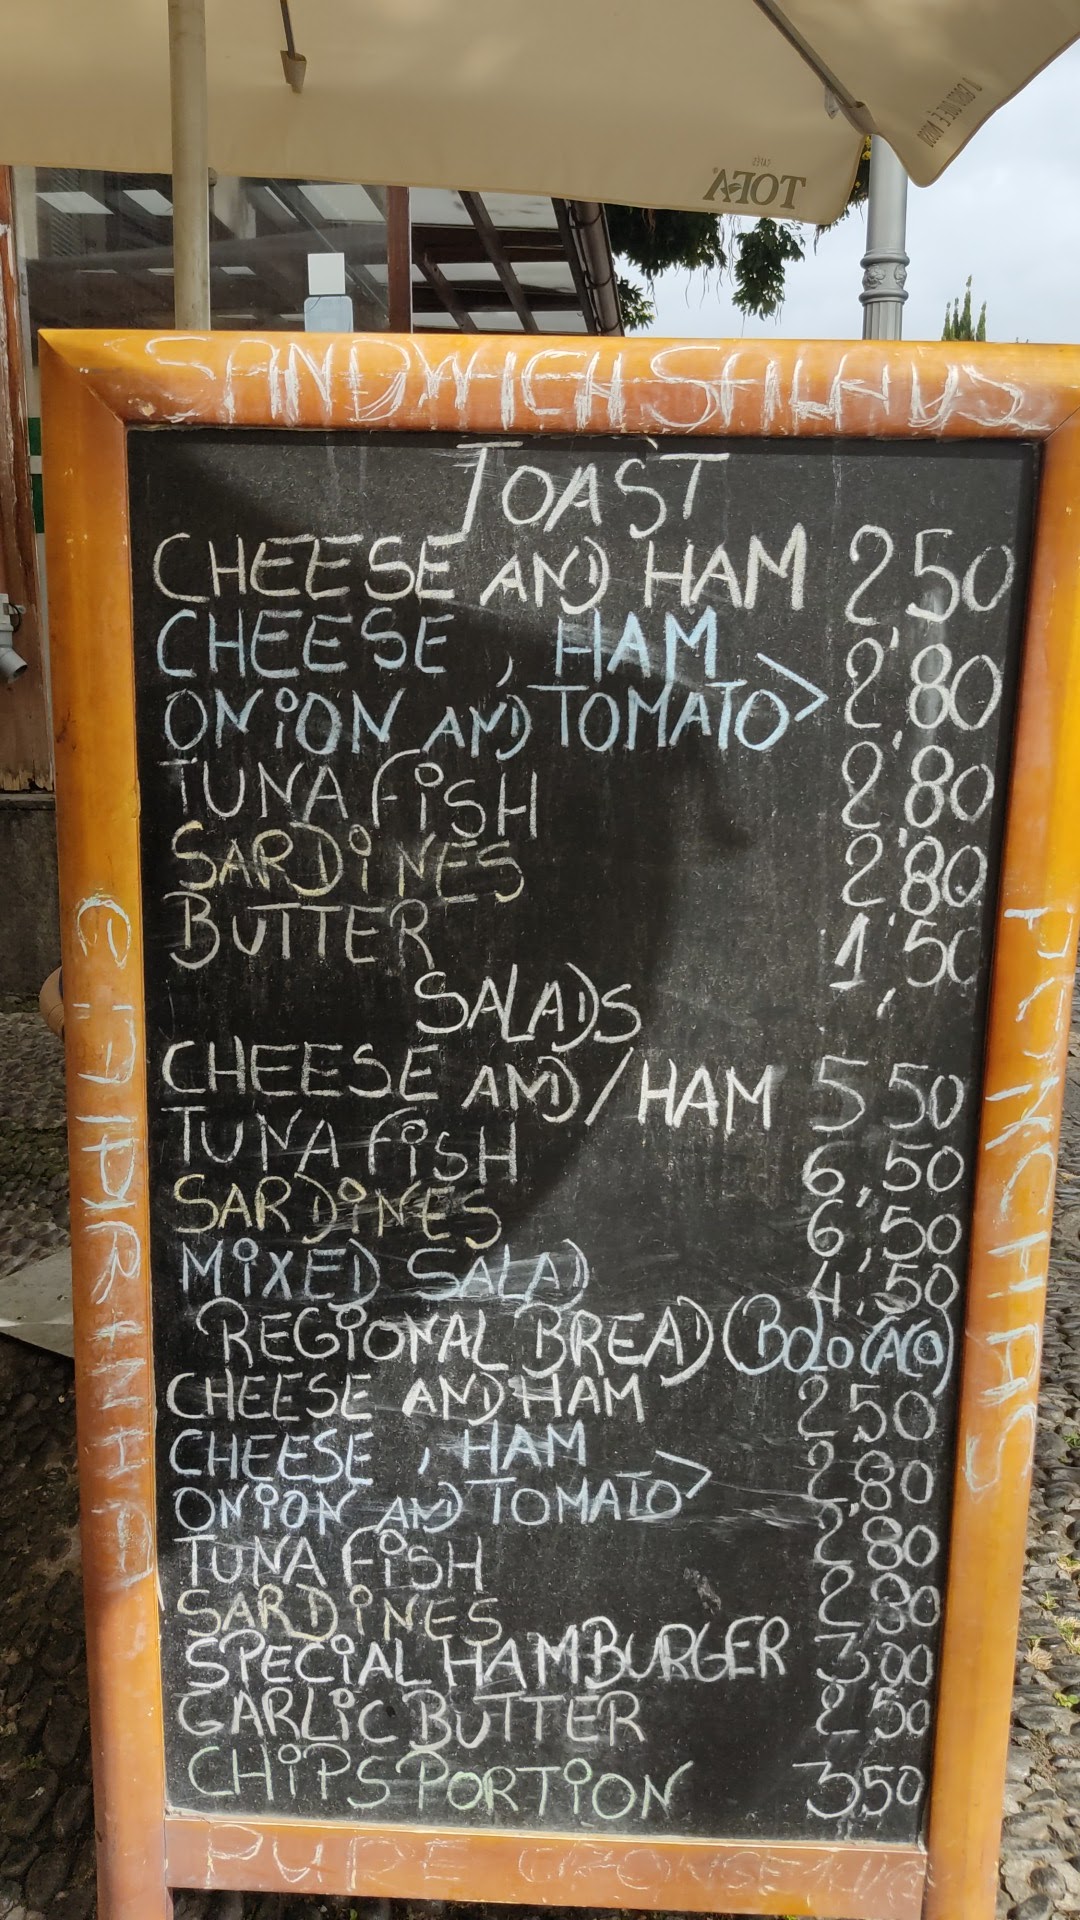 CAFÉS
TOFA
SANDWICH SALADS
TOAST
CHEESE AND HAM 2,50
CHEESE , HAM
ONION AND TOMATO > 2,80
TUNA FISH 2,80
SARDINES 2,80
BUTTER 1,50
SALADS
CHEESE AND/HAM 5,50
TUNA FISH 6,50
SARDINES 6,50
MIXED SALAD 4,50
REGIONAL BREAD (BOLO CACO)
CHEESE AND HAM 2,50
CHEESE , HAM
ONION AND TOMATO > 2,80
TUNA FISH 2,80
SARDINES 2,80
SPECIAL HAMBURGER 3,00
GARLIC BUTTER 2,50
CHIPS PORTION 3,50
PONCHAS
PURE